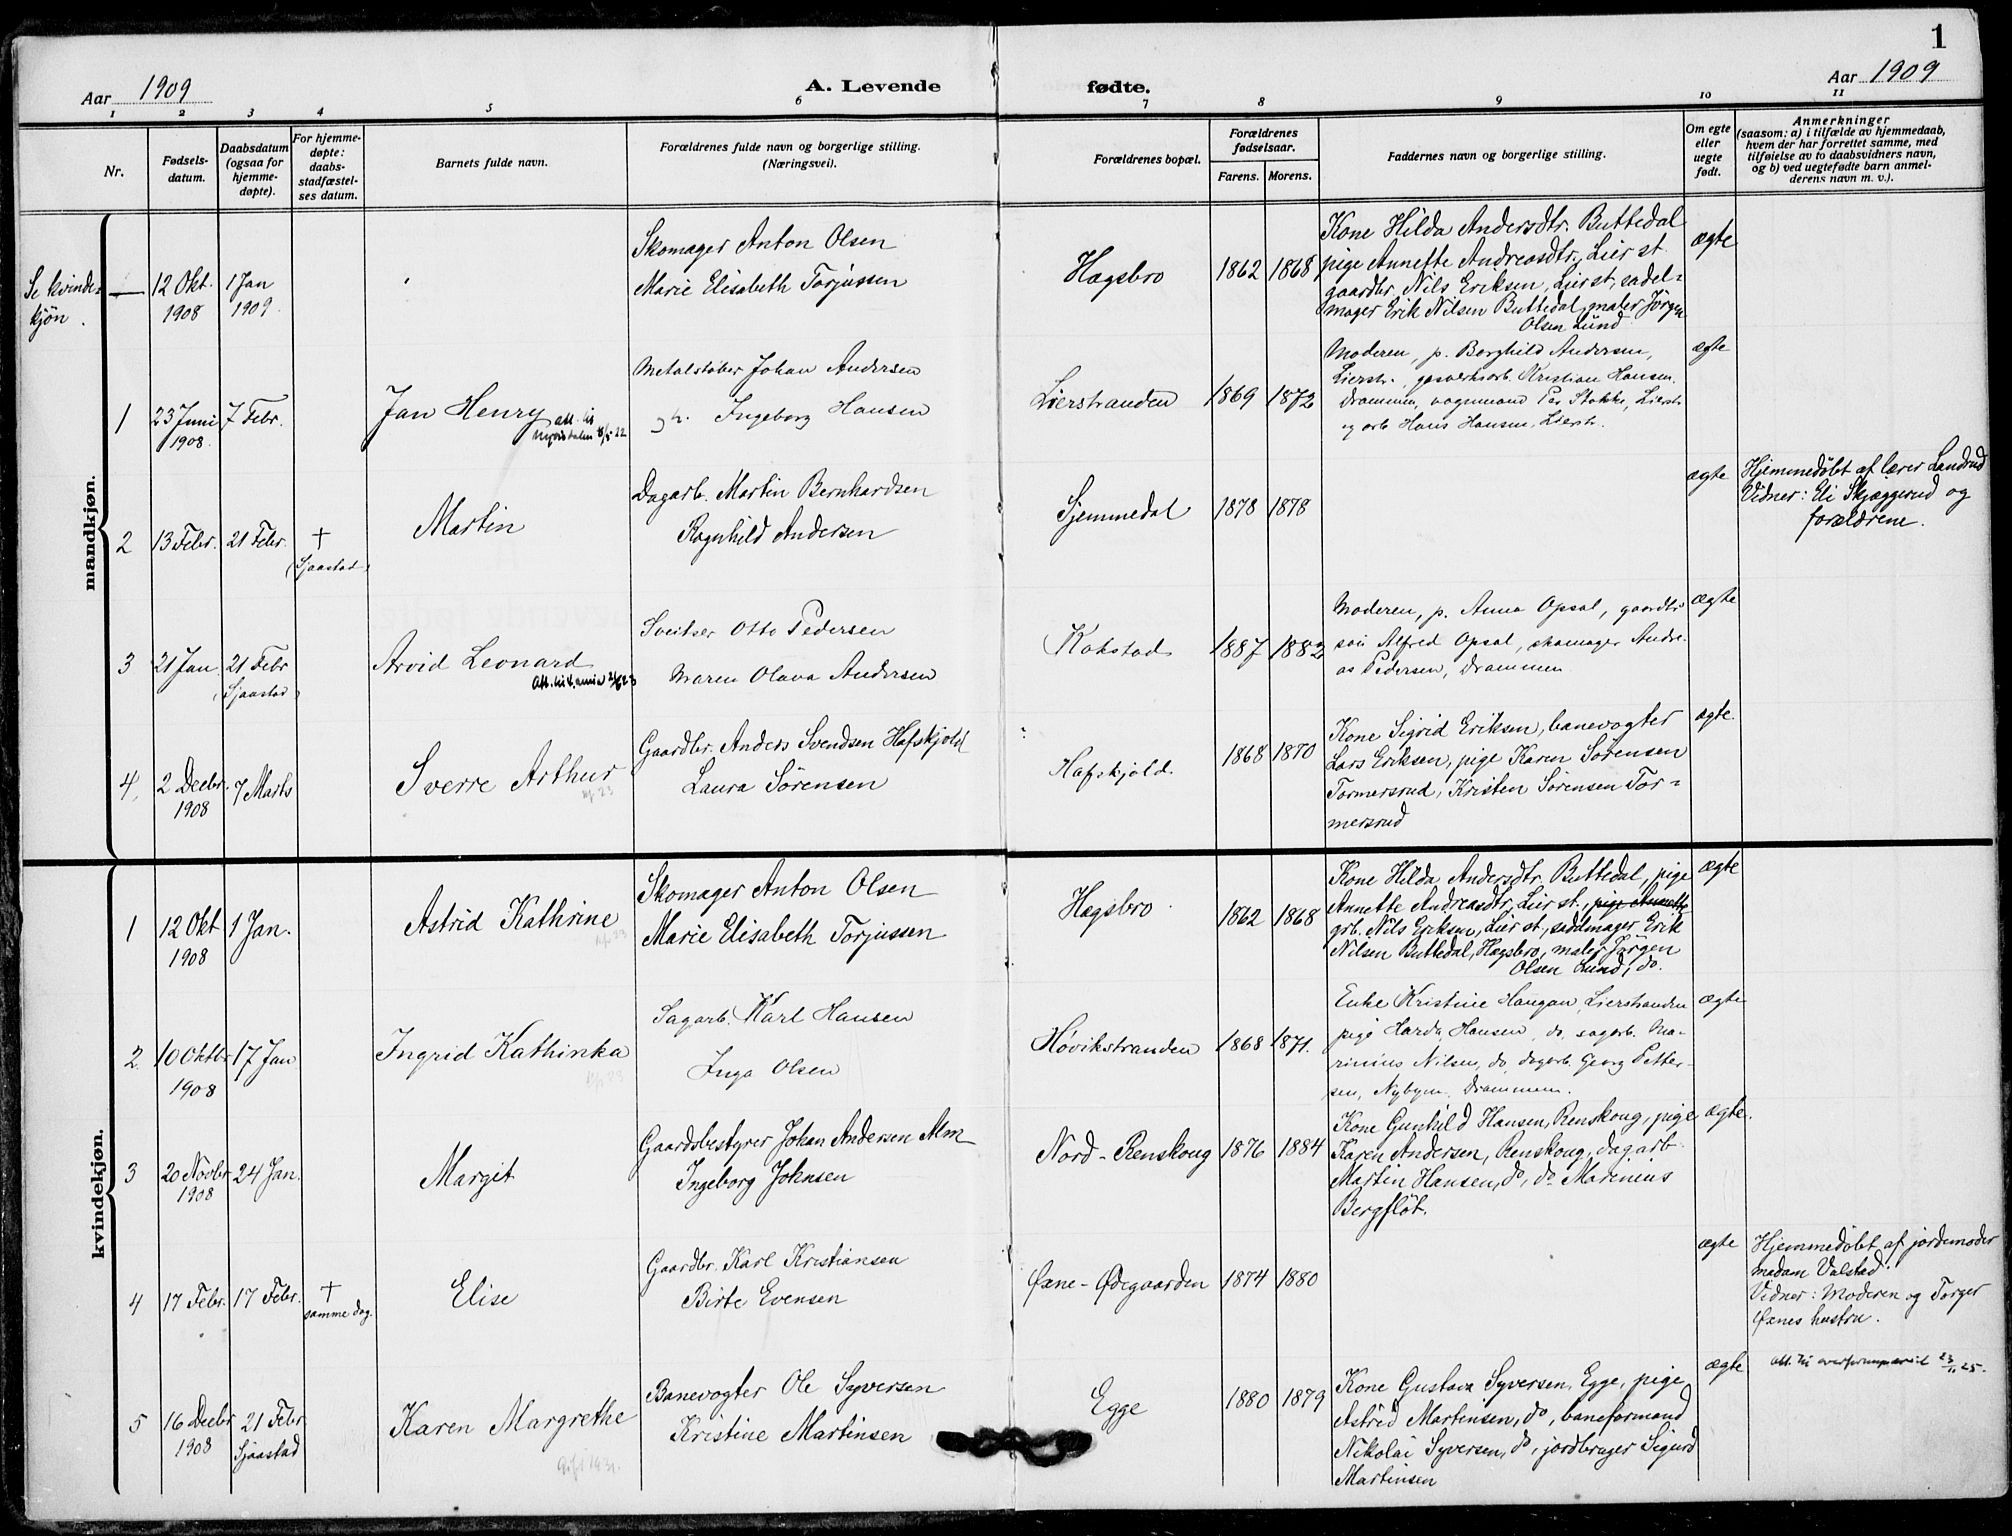 1
Aar 1909
A. Levende fødte.
Aar 1909
1 2 3 4 5 6 7 8 9 10 11
Nr.
Fødsels-
datum.
Daabsdatum
(ogsaa for
hjemme-
døpte).
For hjemme-
døpte:
daabs-
stadfæstel-
ses datum.
Barnets fulde navn.
Forældrenes fulde navn og borgerlige stilling.
(Næringsvei).
Forældrenes bopæl.
Forældrenes
fødselsaar.
Farens. Morens.
Faddernes navn og borgerlige stilling.
Om egte
eller
uegte
født.
Anmerkninger
(saasom: a) i tilfælde av hjemmedaab,
hvem der har forrettet samme, med
tilføielse av to daabsvidners navn,
og b) ved uegtefødte barn anmel-
derens navn m. v.).
mandkjøn.
Se kvinde-
kjøn.
—
12 Okt.
1908
1 Jan
1909
Skomager Anton Olsen
Marie Elisabeth Torjussen
Hagsbro
1862 1868
Kone Hilda Andersdtr. Buttedal
pige Annette Andreasdtr., Lier st.
gaardbr. Nils Eriksen, Lier st, sadel-
mager Erik Nilsen Buttedal, maler Jørgen
Olsen Lund
ægte
1
23 Juni
1908.
7 Febr.
Jan Henry
Metalstøber Johan Andersen
Ingeborg Hansen
Lierstranden
1869 1872
Moderen, p. Borghild Andersen,
Lierstr., gasverksarb. Kristian Hansen,
Drammen, vognmand Per Stokke, Lierstr
og arb. Hans Hansen, Lierstr.
ægte
2
13 Febr.
21 Febr.
+
(Sjaastad)
Martin
Dagarb. Martin Bernhardsen
Ragnhild Andersen
Gjemmedal
1878 1878
ægte
Hjemmedøbt af lærer Landrud
Vidner: Eli Skjæggerud og
forældrene.
3
21 Jan.
21 Febr
(Sjaastad)
Arvid Leonard
Sveitser Otto Pedersen
Maren Olava Andersen
Kokstad
1887 1882
Moderen, p. Anna Opsal, gaardbr
søn Alfred Opsal, skomager Andre-
as Pedersen, Drammen
ægte
4.
2 Decbr.
1908
7 Marts
Sverre Arthur
Gaardbr. Anders Svendsen Hafskjold
Laura Sørensen
Hafskjold.
1868 1870
Kone Sigrid Eriksen, banevogter
Lars Eriksen, pige Karen Sørensen
Tormersrud, Kristen Sørensen Tor-
mersrud
ægte.
kvindekjøn.
1
12 Okt
1908
1 Jan.
Astrid Kathrine
Skomager Anton Olsen
Marie Elisabeth Torjussen
Hagsbro
1862 1868
Kone Hilda Andersdtr. Buttedal, pige
Annette Andreasdtr, Lier st., pige Annette
grb. Nils Eriksen, Lier st, sadelmager Erik
Nilsen Buttedal, Hagsbro, maler Jørgen
Olsen Lund, do.
ægte
2.
10 Oktbr
1908
17 Jan
Ingrid Kathinka
Sagarb. Karl Hansen
Inga Olsen
Høvikstranden
1868 1871.
Enke Kristine Haugan, Lierstranden
pige Harda Hansen, do, sagarb. Ma-
rinius Nilsen, do, dagarb. Georg Petter-
sen, Nybyen, Drammen.
ægte
3
20 Novbr
1908
24 Jan.
Margit
Gaardsbestyrer Johan Andersen Alm
Ingeborg Johnsen
Nord-Renskoug
1876 1884
Kone Gunhild Hansen, Renskoug, pige
Karen Andersen, Renskoug, dagarb
Martin Hansen, do, do Marinius
Bergfløt.
ægte.
4
17 Febr.
17 Febr.
+
samme dag.
Elise
Gaardbr. Karl Kristiansen
Birte Evensen
Øxne-Ødegaarden
1874 1880
ægte
Hjemmedøbt af jordemoder
madam Valstad.
Vidner: Moderen og Torger
Øxnes hustru.
5
16 Decbr
1908
21 Febr
Sjaastad
Karen Margrethe
Gift 1931.
Banevogter Ole Syversen
Kristine Martinsen
Egge
1880 1879
Kone Gustava Syversen, Egge, pige
Astrid Martinsen, do, baneformand
Nikolai Syversen, do, jordbruger Sigurd
Martinsen
ægte